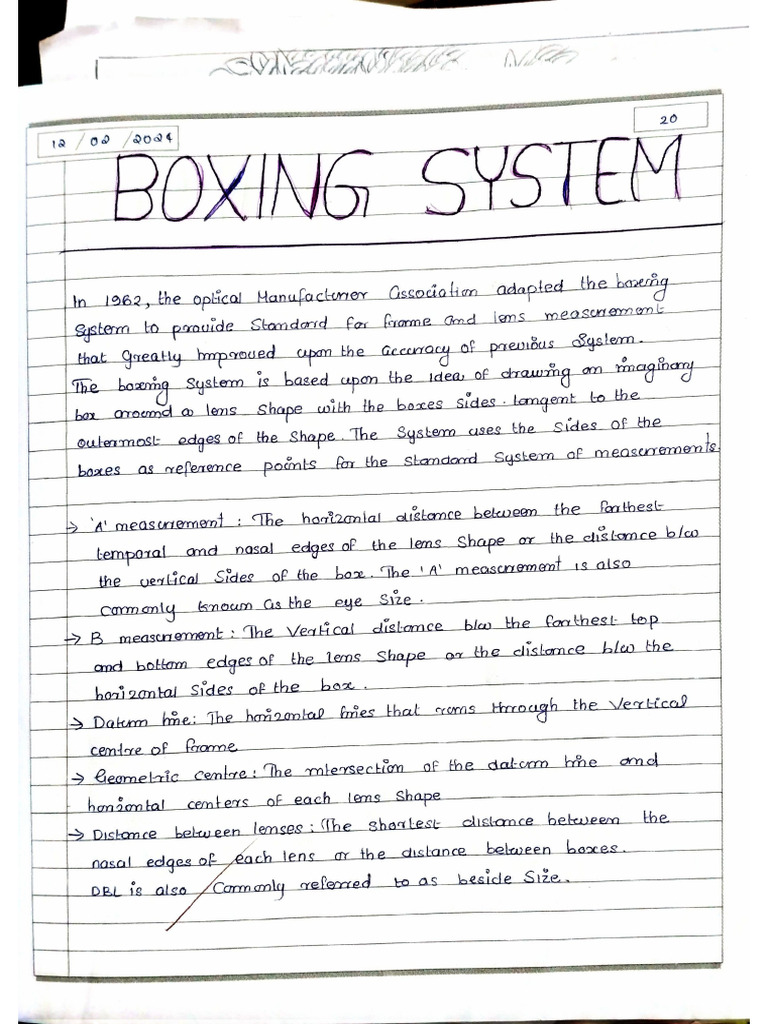 12/02/2024
20
BOXING SYSTEM
In 1962, the optical Manufacturer Association adapted the boxing
System to provide Standard for frame and lens measurement
that Greatly Improved upon the accuracy of previous System.
The boxing System is based upon the idea of drawing an imaginary
box around a lens Shape with the boxes Sides. tangent to the
outermost edges of the Shape. The System uses the Sides of the
boxes as reference points for the Standard System of measurements.
→ 'A' measurement : The horizontal distance between the farthest
temporal and nasal edges of the lens Shape or the distance b/w
the vertical Sides of the box. The 'A' measurement is also
commonly known as the eye Size.
→ B measurement : The Vertical distance b/w the farthest top
and bottom edges of the lens Shape or the distance b/w the
horizontal Sides of the box.
→ Datum line: The horizontal lines that runs through the Vertical
centre of frame
→ Geometric centre: The intersection of the datum line and
horizontal centers of each lens Shape
→ Distance between lenses: The Shortest distance between the
nasal edges of each lens or the distance between boxes.
DBL is also Commonly referred to as beside Size.